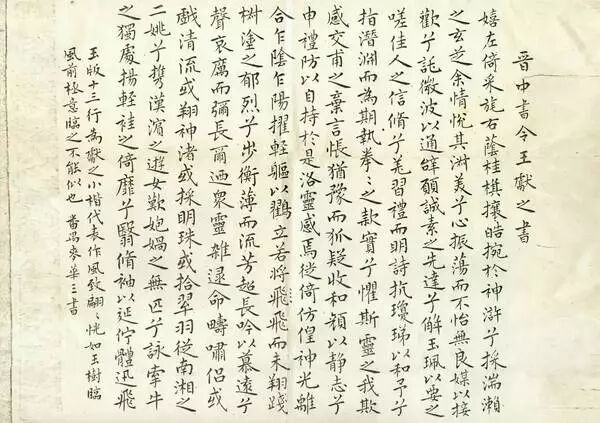 晋中書令王獻之書
嬉左倚采旄右蔭桂棋攘皓捥於神滸兮採湍瀨
之玄芝余情悅其淋美兮心振蕩而不怡無良媒以接
歡兮託微波以通辝願誠素之先達兮解玉珮以要之
嗟佳人之信脩兮羌習禮而明詩抗瓊珶以和予兮
指潛淵而為期執拳〻之款實兮懼斯靈之我欺
感交甫之棄言悵猶豫而狐疑收和顏以静志兮
申禮防以自持於是洛靈感焉徙倚仿偟神光離
合乍陰乍陽擢輕軀以鸖立若將飛飛而未翔踐
樹塗之郁烈兮步衡薄而流芳超長吟以慕遠兮
聲哀厲而彌長爾迺衆靈雜遝命疇嘯侣或
戲清流或翔神渚或採明珠或拾翠羽從南湘之
二姚兮攜漢濱之遊女歎炮媧之無匹兮詠牽牛
之獨處揚輕袿之倚靡兮翳脩袖以延佇體迅飛
玉版十三行為獻之小楷代表作風致翩〻恍如玉樹臨
風前極意臨之不能似也 番禺麥華三書